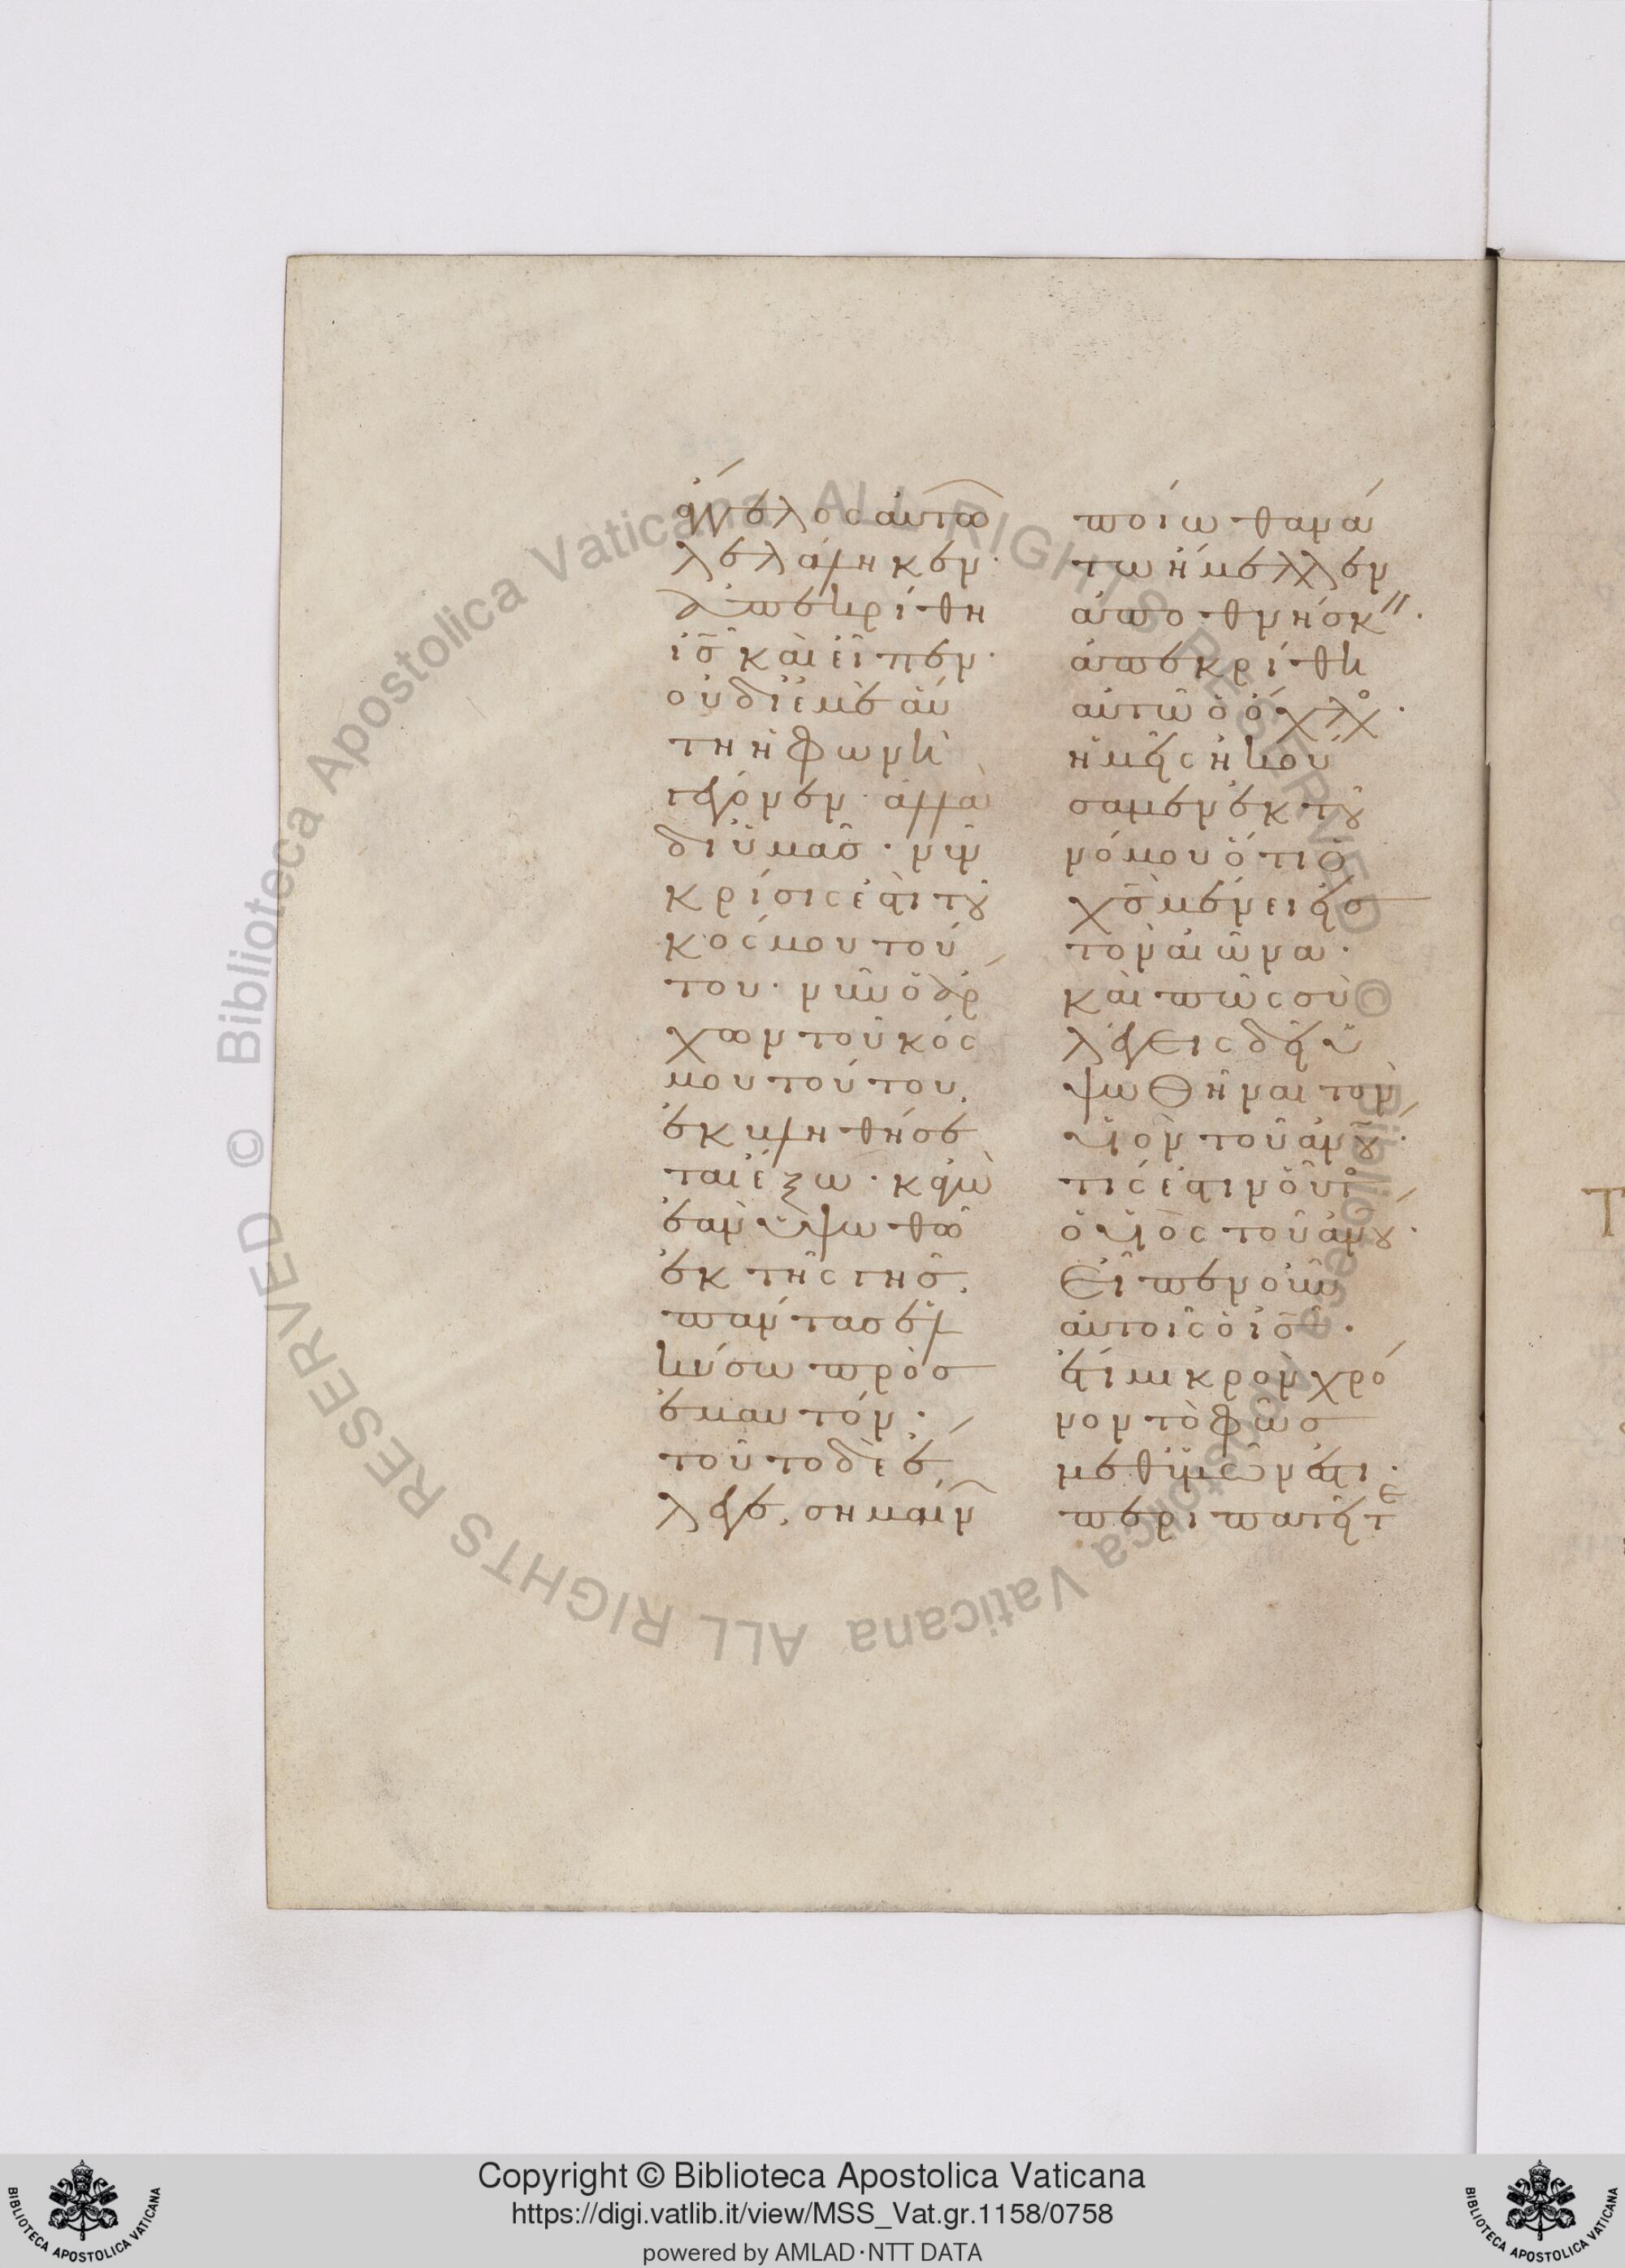 ἄγγελος αὐτῶ
λελάληκεν·
ἀπεκρίθη
ις̅ καὶ εἶπεν·
οὐ δι ἐμὲ αὕ
τη ἡ φωνὴ
γέγονεν· ἀλλὰ
δι ὑμᾶς· νῦν
κρίσις ἐστὶ τοῦ
κόσμου τού
του· νῦν ὁ ἄρ
χων τοῦ κόσ
μου τούτου
ἐκβληθήσε
ται ἔξω· κἀγὼ
ἐὰν ὑψωθῶ
ἐκ τῆς γῆς,
πάντας ἑλ
κύσω πρὸς
ἐμαυτόν·
τοῦτο δὲ ἔ
λεγε, σημαίν
ποίω θανά
τω ἤμελλεν
ἀποθνήσκ·
ἀπεκρίθη
αὐτῶ ὁ ὄχλο·
ἡμεῖς ἠκού
σαμεν ἐκ τοῦ
νόμου ὅτι ὁ
χς̅ μένει εἰς
τὸν αἰῶνα·
καὶ πῶς σὺ
λέγεις δεῖ ὑ
ψωθῆναι τὸν
υἱὸν τοῦ ανου·
τίς ἐστιν οὗτο
ὁ υἱὸς τοῦ ανου·
Εἶπεν οὖν
αὐτοῖς ὁ ις̅·
ἔτι μικρὸν χρό
νον τὸ φῶς
μεθ ὑμῶν ἐστι·
περιπατεῖτε
Copyright © Biblioteca Apostolica Vaticana
https://digi.vatlib.it/view/MSS_Vat.gr.1158/0758
powered by AMLAD·NTT DATA
BIBLIOTECA APOSTOLICA VATICANA
BIBLIOTECA APOSTOLICA VATICANA
© Biblioteca Apostolica Vaticana ALL RIGHTS RESERVED © Biblioteca Apostolica Vaticana ALL RIGHTS RESERVED